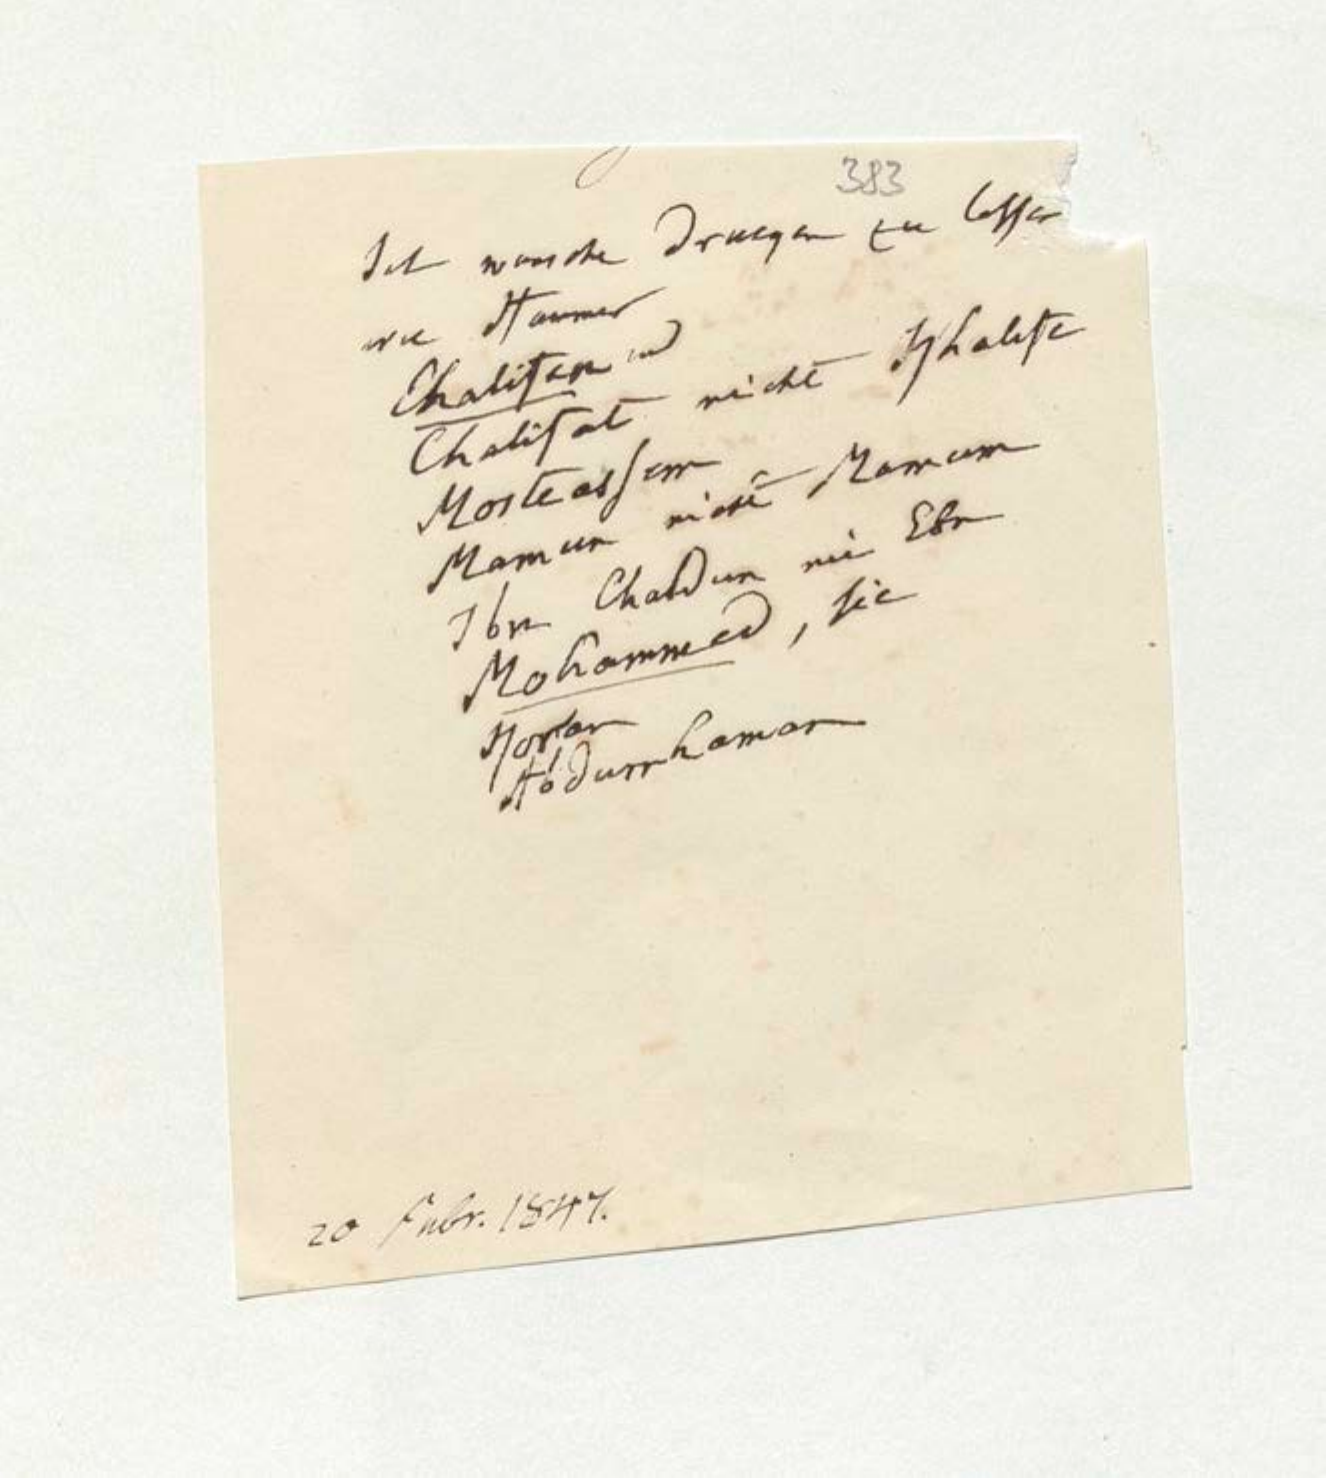 383
Ich wünsche drucken zu lassen
wie Hammer
Chalifen und
Chalifat nicht Khalife
Mosteassem
Mamun nicht Mamum
Ibn Chaldun nie Ebn
Mohammed, sic
Abdurrhaman
20 Febr. 1847.